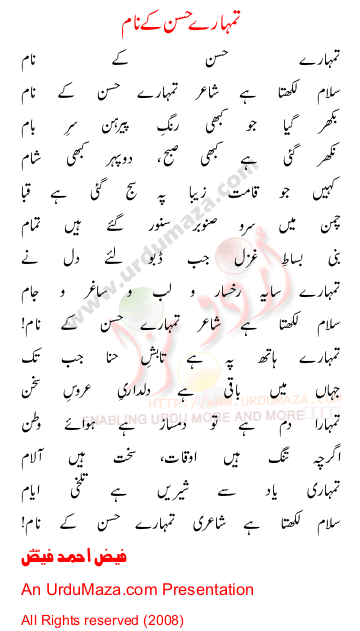 تمہارے حسن کے نام
تمہارے حسن کے نام
سلام لکھتا ہے شاعر تمہارے حسن کے نام
بکھر گیا جو کبھی رنگِ پیرہن سرِ بام
نکھر گئی ہے کبھی صبح، دوپہر کبھی شام
کہیں جو قامت زیبا پہ سج گئی ہے قبا
چمن میں سرو صنوبر سنور گئے ہیں تمام
بنی بساطِ غزل جب ڈبو لئے دل نے
تمہارے سایہ رخسار و لب و ساغر و جام
سلام لکھتا ہے شاعر تمہارے حسن کے نام!
تمہارے ہاتھ پہ ہے تابشِ حنا جب تک
جہاں میں باقی ہے دلداریِ عروسِ سخن
تمہارا دم ہے تو دمساز ہے ہوائے وطن
اگرچہ تنگ ہیں اوقات، سخت ہیں آلام
تمہاری یاد سے شیریں ہے تلخی ایام
سلام لکھتا ہے شاعری تمہارے حسن کے نام!
فیض احمد فیضؔ
An UrduMaza.com Presentation
All Rights reserved (2008)
www.urdumaza.com
HTTP://WWW.URDUMAZA.COM
ENABLING URDU MORE AND MORE